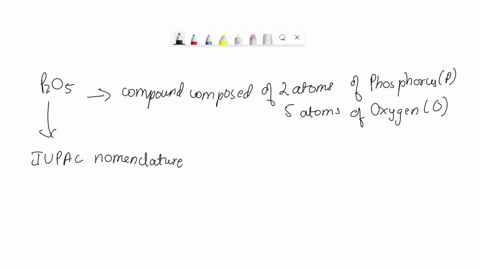 P2O5 → compound composed of 2 atoms of Phosphorus(P)
5 atoms of Oxygen(O)
IUPAC nomenclature